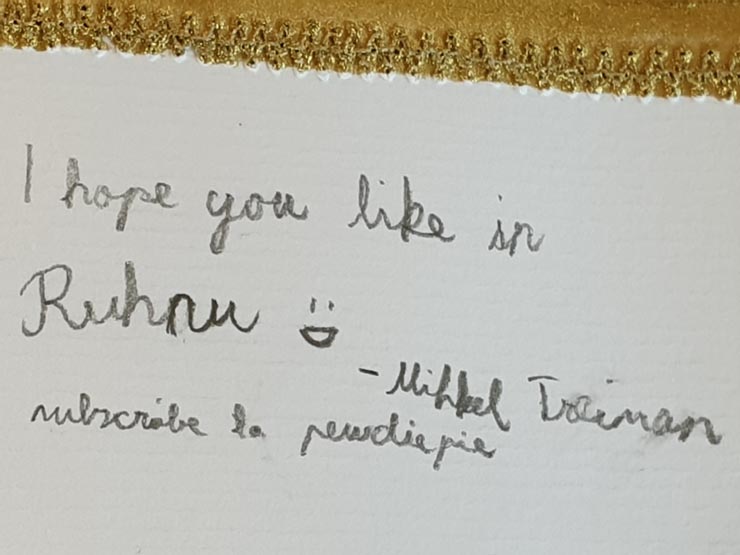 I hope you like in
Ruhnu
- Mihkel Trei­man
subscribe to pewdiepie